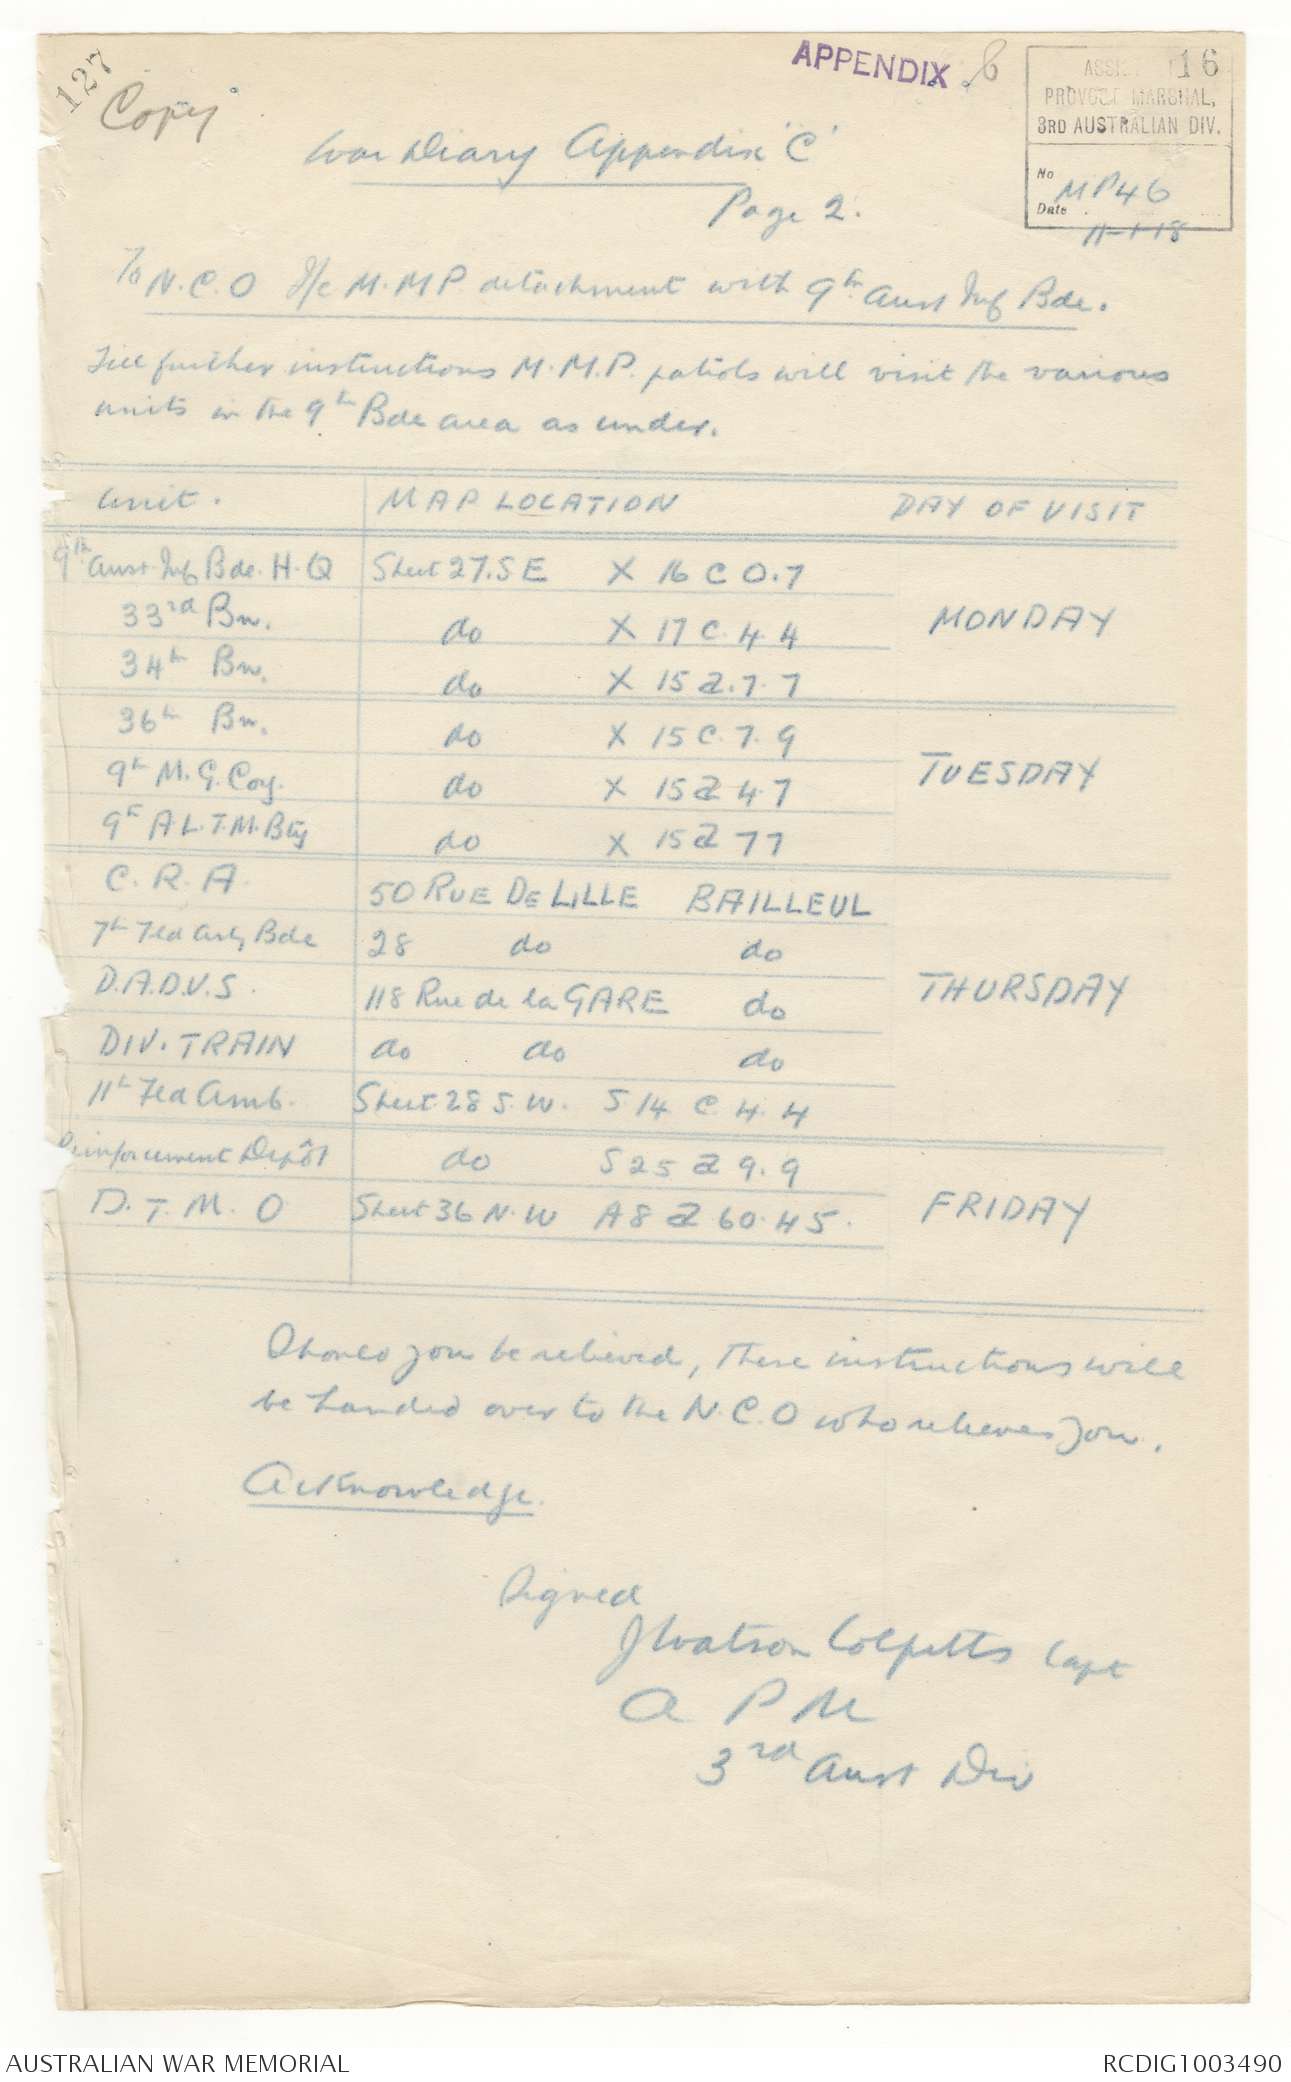 127
Copy
APPENDIX 8
16
PROVOST MARSHAL,
3RD AUSTRALIAN DIV.
No MP46
Date 11-1-18
War Diary Appendix 'C'
Page 2.
To N.C.O I/c M.M.P detachment with 9th Aust Inf Bde.
Till further instructions M.M.P. patrols will visit the various
units in the 9th Bde area as under.
Unit. MAP LOCATION DAY OF VISIT
9th Aust. Inf Bde. H.Q Sheet 27.S E X 16 C 0.7
33rd Bn. do X 17 C. 4.4 MONDAY
34th Bn. do X 15 a.7.7
36th Bn. do X 15 C.7.9
9th M.G. Coy. do X 15 a 4.7 TUESDAY
9th A L.T.M. Bty do X 15 a 77
C.R.A. 50 RUE DE LILLE BAILLEUL
7th Fld Arty Bde 28 do do
D.A.D.V.S. 118 Rue de la GARE do THURSDAY
DIV. TRAIN do do do
11th Fld Amb. Sheet 28 S.W. S.14 C.4.4
Reinforcement Depôt do S 25 a 9.9
D.T.M.O Sheet 36 N.W A 8 a 60.45. FRIDAY
Should you be relieved, these instructions will
be handed over to the N.C.O who relieves you.
Acknowledge.
Signed
J Watson Colpitts Capt
A P M
3rd Aust Div
AUSTRALIAN WAR MEMORIAL RCDIG1003490